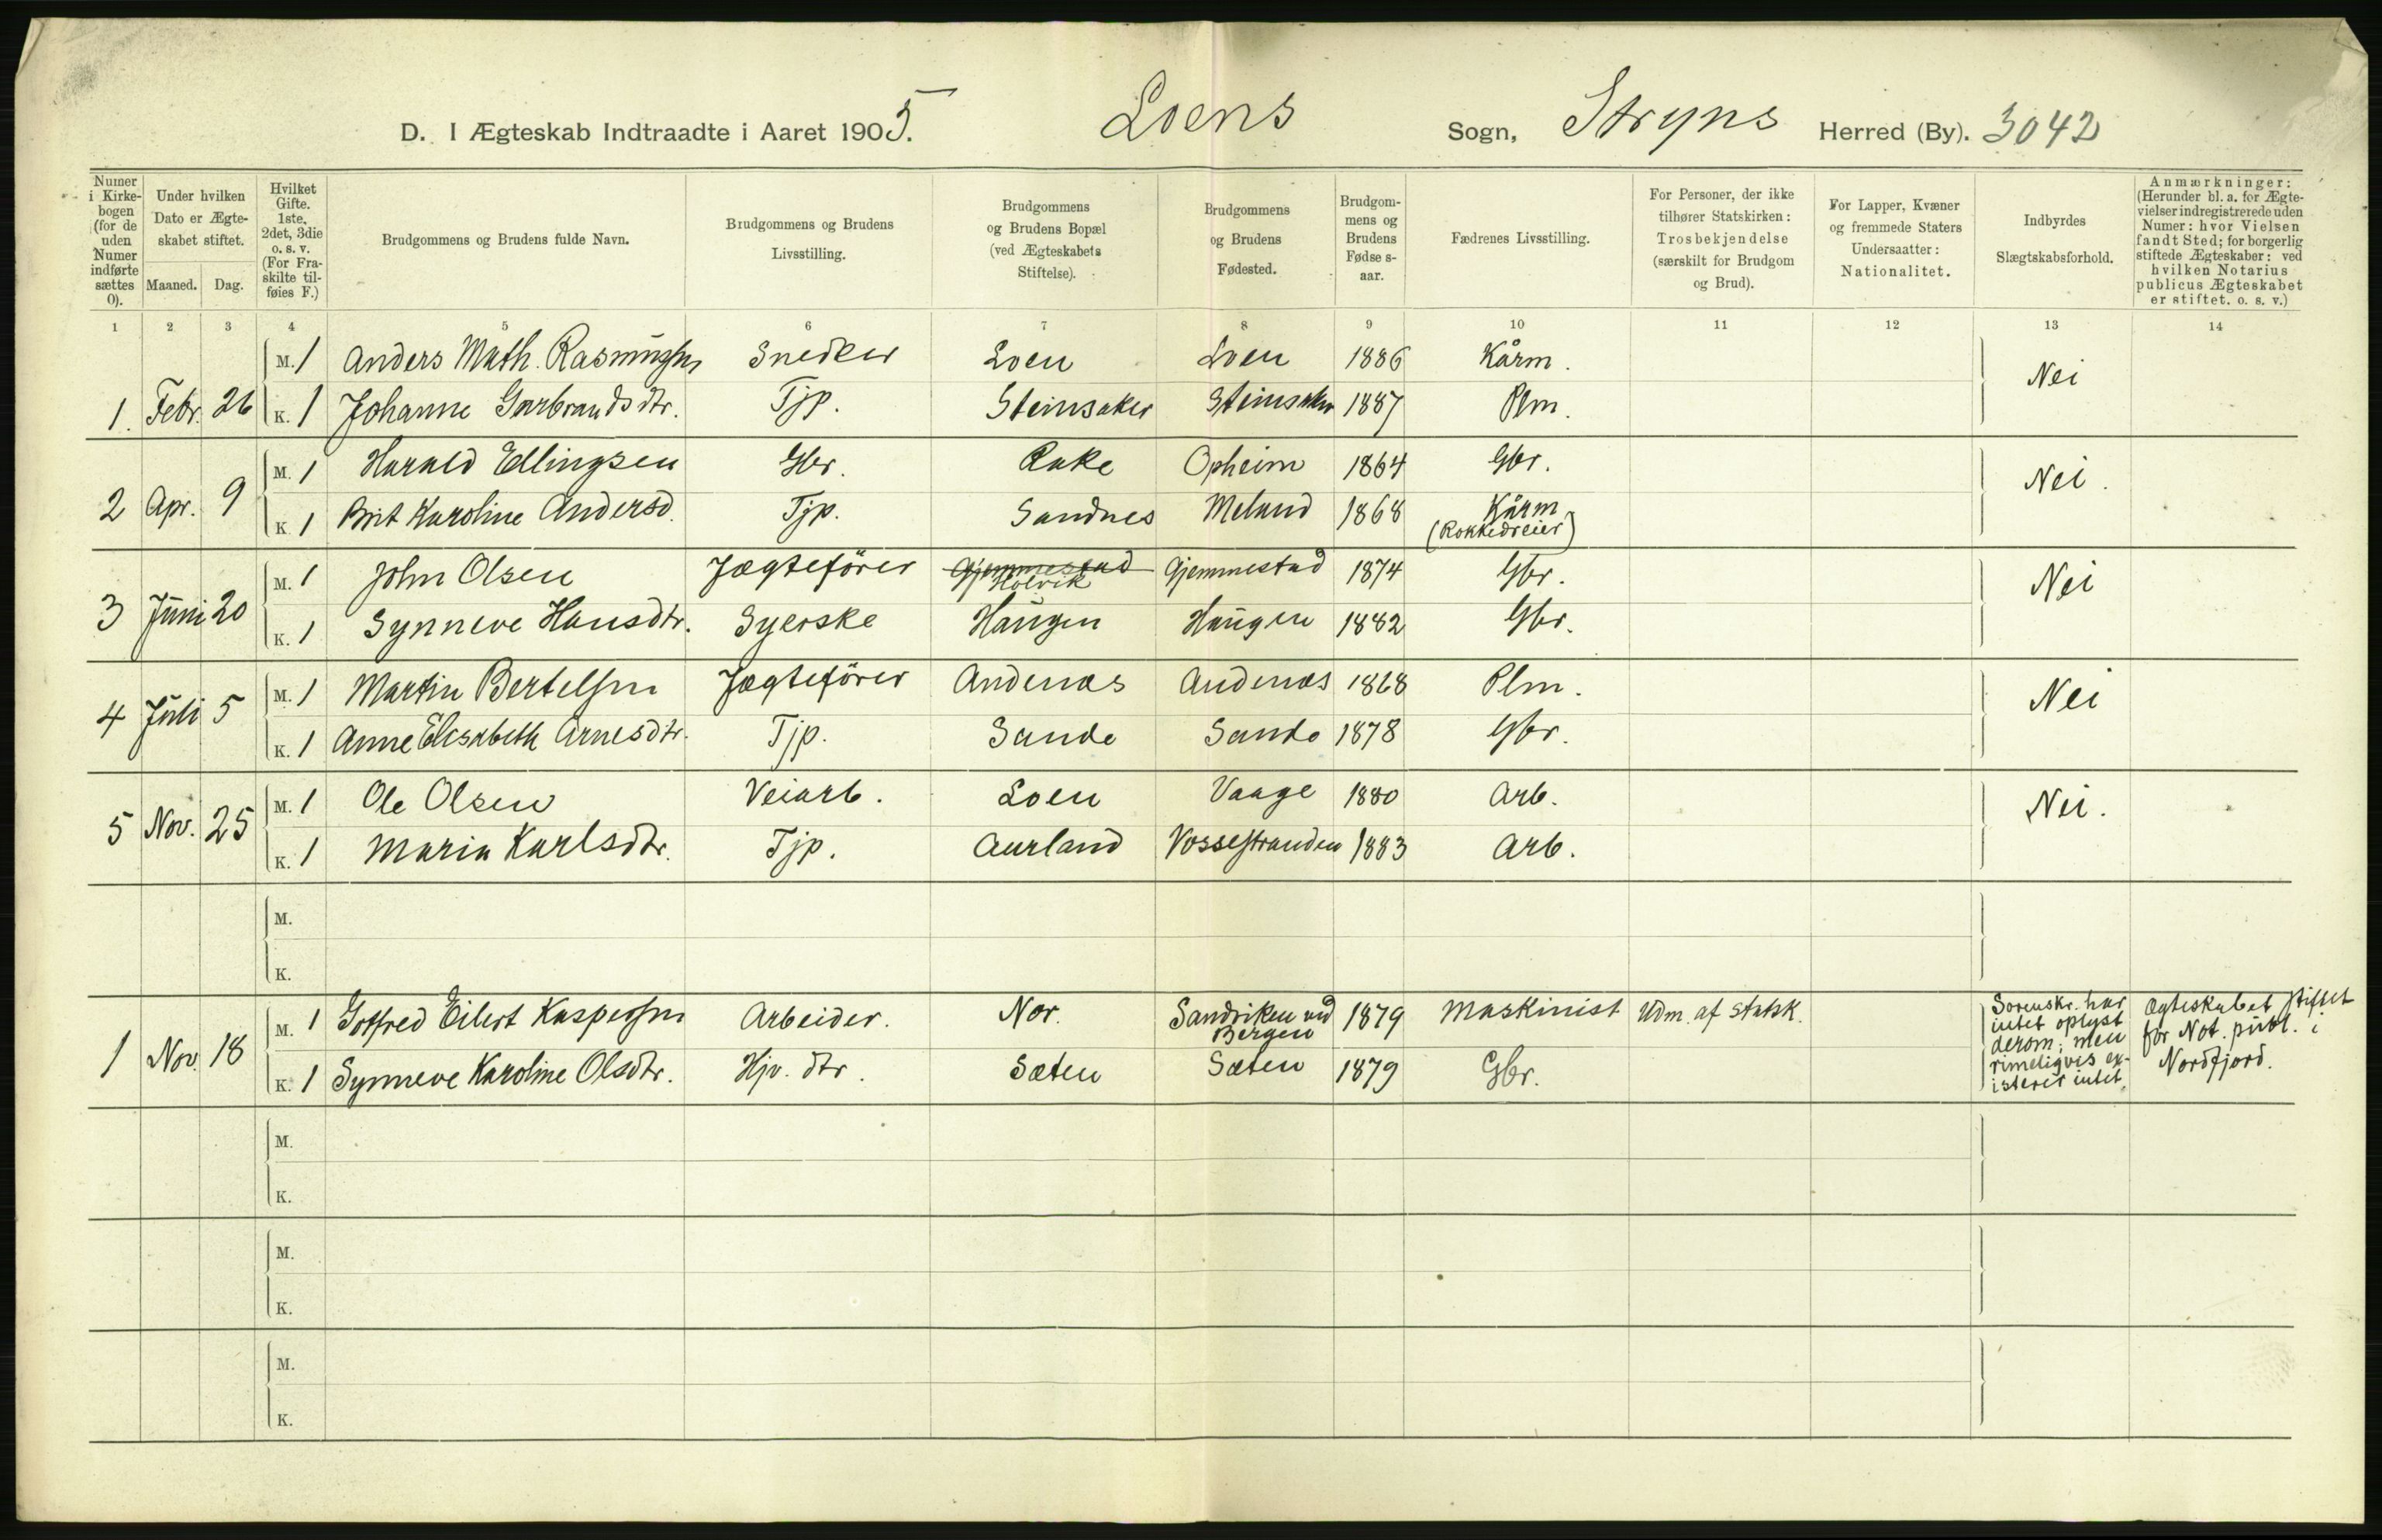 D. I Ægteskab Indtraadte i Aaret 1905. Loens Sogn, Stryns Herred (By). 3042
Numer i Kirkebogen (for de uden Numer indførte sættes 0).
Under hvilken Dato er Ægteskabet stiftet.
Maaned. Dag.
Hvilket Gifte. 1ste, 2det, 3die o. s. v. (For Fraskilte tilføies F.)
Brudgommens og Brudens fulde Navn.
Brudgommens og Brudens Livsstilling.
Brudgommens og Brudens Bopæl (ved Ægteskabets Stiftelse).
Brudgommens og Brudens Fødested.
Brudgommens og Brudens Fødselsaar.
Fædrenes Livsstilling.
For Personer, der ikke tilhører Statskirken: Trosbekjendelse (særskilt for Brudgom og Brud).
For Lapper, Kvæner og fremmede Staters Undersaatter: Nationalitet.
Indbyrdes Slægtskabsforhold.
Anmærkninger: (Herunder bl. a. for Ægtevielser indregistrerede uden Numer: hvor Vielsen fandt Sted; for borgerlig stiftede Ægteskaber: ved hvilken Notarius publicus Ægteskabet er stiftet. o. s. v.)
1 2 3 4 5 6 7 8 9 10 11 12 13 14
M. 1 Anders Math. Rasmussen Snedker Loen Loen 1886 Kårm.
1. Febr. 26 K. 1 Johanne Garbrandsdtr. Tjp. Steinsaker Steinsaker 1887 Plm. Nei
M. 1 Harald Ellingsen Gbr. Rake Opheim 1864 Gbr.
2 Apr. 9 K 1 Brit Karoline Andersd. Tjp. Sandnes Meland 1868 Kårm (Rokkedreier) Nei.
M. 1 John Olsen Jægtefører Gjemmestad Holvik Gjemmestad 1874 Gbr.
3 Juni 20 K. 1 Synneve Hansdtr. Syerske Haugen Haugen 1882 Gbr. Nei
M. 1 Martin Bertelsen Jægtefører Andenæs Andenæs 1868 Plm.
4 Juli 5 K. 1 Anne Elisabeth Arnesdtr. Tjp. Sande Sande 1878 Gbr. Nei
M. 1 Ole Olsen Veiarb. Loen Vaage 1880 Arb.
5 Nov. 25 K. 1 Maria Karlsdtr. Tjp. Aurland Vossestranden 1883 Arb. Nei.
M.
K.
M. 1 Gotfred Eilert Kaspersen Arbeider. Nor. Sandviken ved Bergen 1879 Maskinist Udm. af Statsk.
1 Nov 18 K. 1 Synneve Karoline Olsdtr. Hjv. dtr. Sæten Sæten 1879 Gbr.
Sorenskr. har
intet oplyst
derom; men
rimeligvis ex-
isterer intet.
Ægteskabet stiftet
for Not. publ. i
Nordfjord.
M.
K.
M.
K.
M.
K.